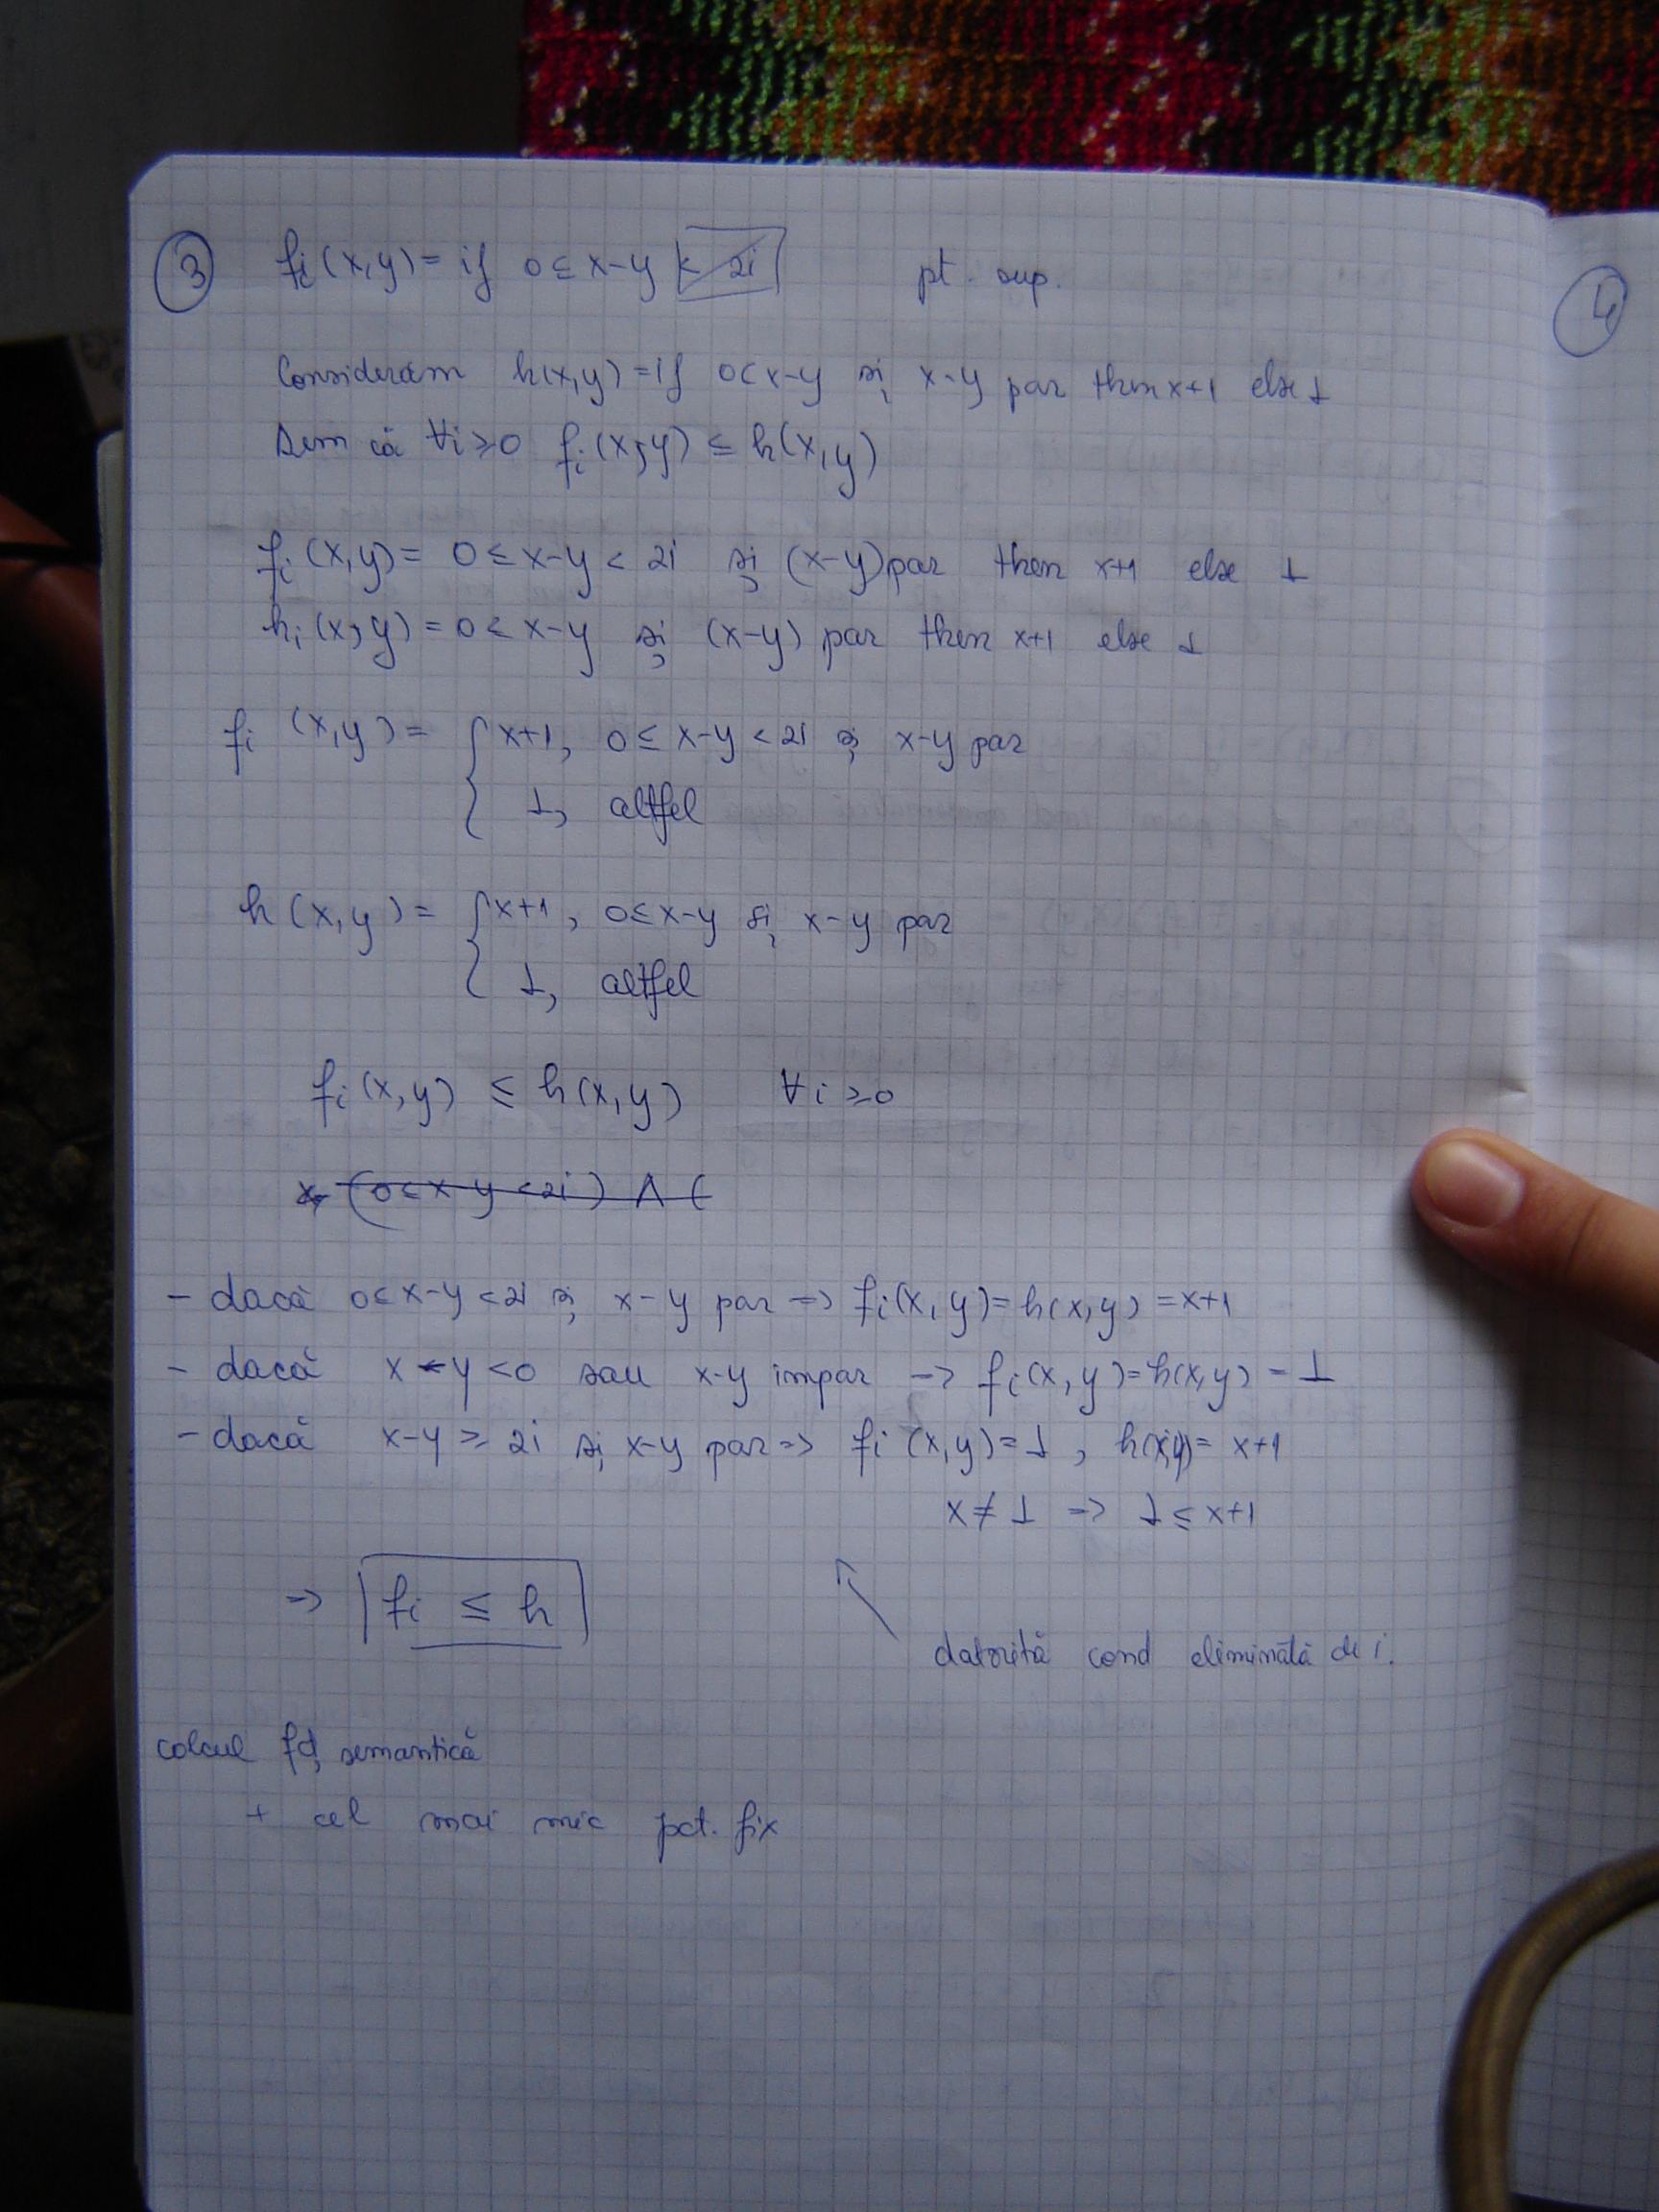 ③ fi(x,y) = if 0 ≤ x-y < 2i pt. sup.
Considerăm h(x,y) = if 0≤x-y și x-y par then x+1 else ⊥
Dem că ∀i≥0 fi(x,y) ≤ h(x,y)
fi(x,y) = 0 ≤ x-y < 2i și (x-y) par then x+1 else ⊥
hi(x,y) = 0 ≤ x-y și (x-y) par then x+1 else ⊥
fi (x,y) = { x+1, 0 ≤ x-y < 2i și x-y par
⊥, altfel
h(x,y) = { x+1, 0≤x-y și x-y par
⊥, altfel
fi(x,y) ≤ h(x,y) ∀i≥0
(0≤x-y<2i) ∧ (
- dacă 0≤x-y<2i și x-y par => fi(x,y)=h(x,y)=x+1
- dacă x-y<0 sau x-y impar => fi(x,y)=h(x,y)=⊥
- dacă x-y ≥ 2i și x-y par => fi(x,y)=⊥, h(x,y)= x+1
x ≠ ⊥ => ⊥ ≤ x+1
=> fi ≤ h
datorită cond eliminată de i.
calcul fcț semantică
+ cel mai mic pct. fix
④